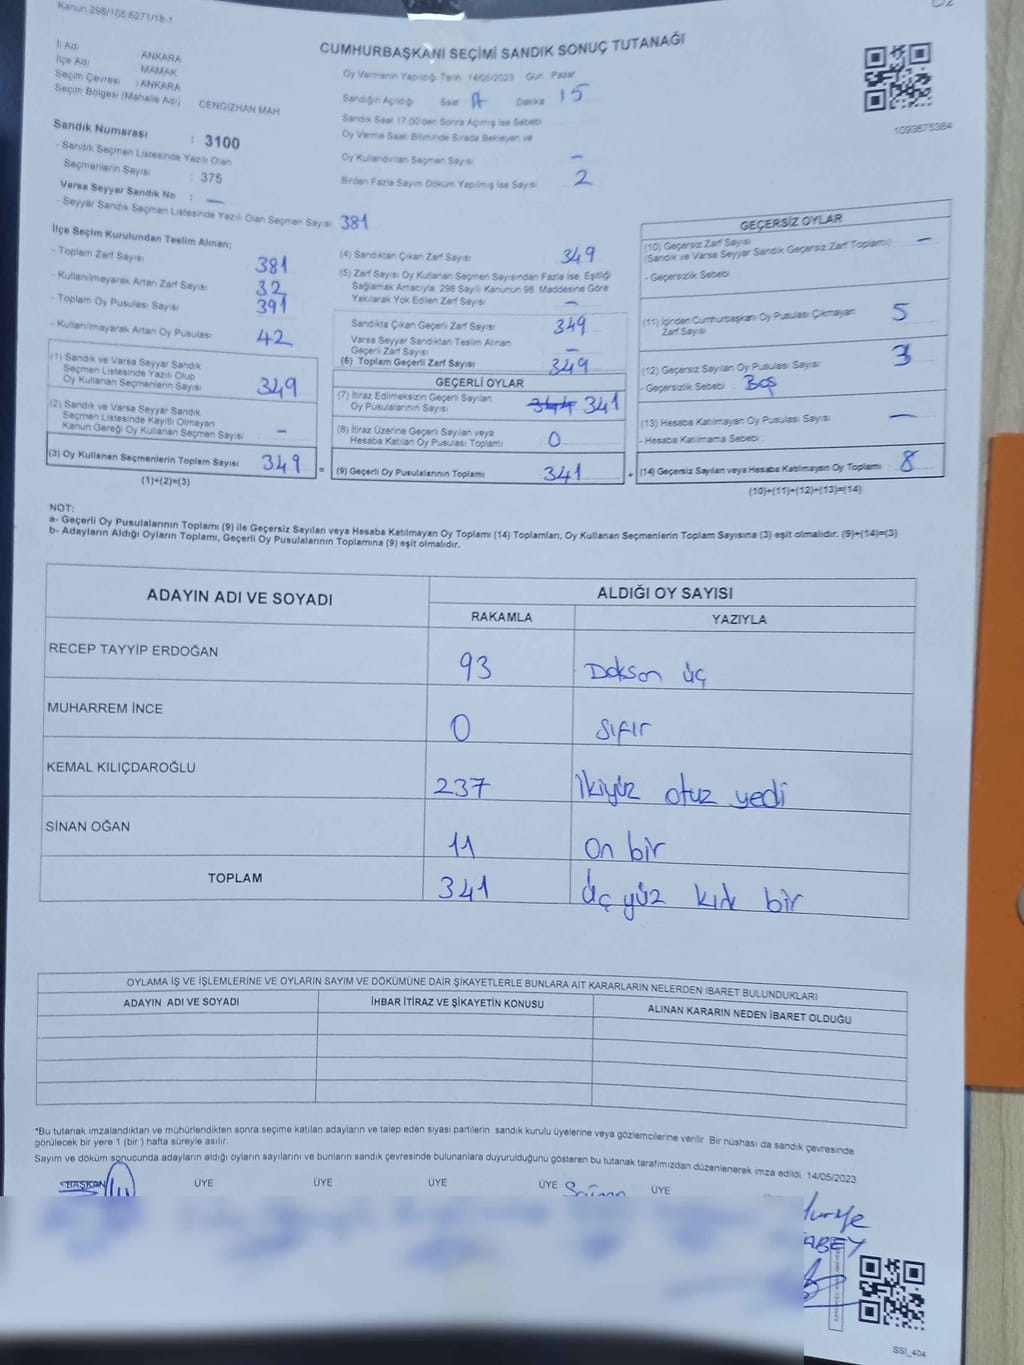 Kanun 298/105 6271/18-1
CUMHURBAŞKANI SEÇİMİ SANDIK SONUÇ TUTANAĞI
İl Adı ANKARA
İlçe Adı MAMAK
Seçim Çevresi : ANKARA
Seçim Bölgesi (Mahalle Adı) CENGİZHAN MAH
Oy Vermenin Yapıldığı Tarih 14/05/2023 Gün Pazar
Sandığın Açıldığı Saat Dakika 15
Sandık Saat 17.00'den Sonra Açılmış İse Sebebi
Oy Verme Saati Bitiminde Sırada Bekleyen ve
Oy Kullandırılan Seçmen Sayısı –
Birden Fazla Sayım Döküm Yapılmış İse Sayısı 2
1093675384
Sandık Numarası : 3100
- Sandık Seçmen Listesinde Yazılı Olan
Seçmenlerin Sayısı : 375
Varsa Seyyar Sandık No : –
- Seyyar Sandık Seçmen Listesinde Yazılı Olan Seçmen Sayısı 381
İlçe Seçim Kurulundan Teslim Alınan;
- Toplam Zarf Sayısı 381
- Kullanılmayarak Artan Zarf Sayısı 32
- Toplam Oy Pusulası Sayısı 391
- Kullanılmayarak Artan Oy Pusulası 42
(1) Sandık ve Varsa Seyyar Sandık
Seçmen Listesinde Yazılı Olup
Oy Kullanan Seçmenlerin Sayısı 349
(2) Sandık ve Varsa Seyyar Sandık
Seçmen Listesinde Kayıtlı Olmayan
Kanun Gereği Oy Kullanan Seçmen Sayısı –
(3) Oy Kullanan Seçmenlerin Toplam Sayısı 349
(1)+(2)=(3)
(4) Sandıktan Çıkan Zarf Sayısı 349
(5) Zarf Sayısı Oy Kullanan Seçmen Sayısından Fazla İse, Eşitliği
Sağlamak Amacıyla, 298 Sayılı Kanunun 98. Maddesine Göre
Yakılarak Yok Edilen Zarf Sayısı –
Sandıkta Çıkan Geçerli Zarf Sayısı 349
Varsa Seyyar Sandıktan Teslim Alınan
Geçerli Zarf Sayısı –
(6) Toplam Geçerli Zarf Sayısı 349
GEÇERLİ OYLAR
(7) İtiraz Edilmeksizin Geçerli Sayılan
Oy Pusulalarının Sayısı 341
(8) İtiraz Üzerine Geçerli Sayılan veya
Hesaba Katılan Oy Pusulası Toplamı 0
= (9) Geçerli Oy Pusulalarının Toplamı 341
GEÇERSİZ OYLAR
(10) Geçersiz Zarf Sayısı –
(Sandık ve Varsa Seyyar Sandık Geçersiz Zarf Toplamı)
- Geçersizlik Sebebi
(11) İçinden Cumhurbaşkanı Oy Pusulası Çıkmayan
Zarf Sayısı 5
(12) Geçersiz Sayılan Oy Pusulası Sayısı 3
- Geçersizlik Sebebi : Boş
(13) Hesaba Katılmayan Oy Pusulası Sayısı –
- Hesaba Katılmama Sebebi
+ (14) Geçersiz Sayılan veya Hesaba Katılmayan Oy Toplamı 8
(10)+(11)+(12)+(13)=(14)
NOT:
a- Geçerli Oy Pusulalarının Toplamı (9) ile Geçersiz Sayılan veya Hesaba Katılmayan Oy Toplamı (14) Toplamları, Oy Kullanan Seçmenlerin Toplam Sayısına (3) eşit olmalıdır. (9)+(14)=(3)
b- Adayların Aldığı Oyların Toplamı, Geçerli Oy Pusulalarının Toplamına (9) eşit olmalıdır.
ADAYIN ADI VE SOYADI ALDIĞI OY SAYISI
RAKAMLA YAZIYLA
RECEP TAYYİP ERDOĞAN 93 Doksan üç
MUHARREM İNCE 0 Sıfır
KEMAL KILIÇDAROĞLU 237 İkiyüz otuz yedi
SİNAN OĞAN 11 On bir
TOPLAM 341 Üç yüz kırk bir
OYLAMA İŞ VE İŞLEMLERİNE VE OYLARIN SAYIM VE DÖKÜMÜNE DAİR ŞİKAYETLERLE BUNLARA AİT KARARLARIN NELERDEN İBARET BULUNDUKLARI
ADAYIN ADI VE SOYADI İHBAR İTİRAZ VE ŞİKAYETİN KONUSU ALINAN KARARIN NEDEN İBARET OLDUĞU
*Bu tutanak imzalandıktan ve mühürlendikten sonra seçime katılan adayların ve talep eden siyasi partilerin sandık kurulu üyelerine veya gözlemcilerine verilir. Bir nüshası da sandık çevresinde
görülecek bir yere 1 (bir ) hafta süreyle asılır.
Sayım ve döküm sonucunda adayların aldığı oyların sayılarını ve bunların sandık çevresinde bulunanlara duyurulduğunu gösteren bu tutanak tarafımızdan düzenlenerek imza edildi. 14/05/2023
BAŞKAN ÜYE ÜYE ÜYE ÜYE ÜYE
ABEY
SSİ_404